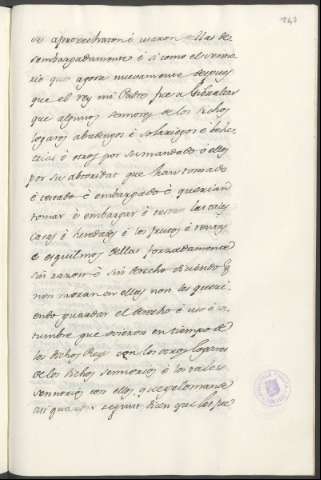 247
se aprovecharon é usaron dellas de
sembargadamente é si como el
que agora nuevamente despues
que el rey mi Padre fue a Gibraltar
que algunos sennores de los dichos
logares abadengos é solariegos é behe
trias é otros por su mandado ó ellos
por su abtoridat que han tomado
é é embargado é querian
tomar é embargar é las tales
casas é heredades é los frutos é rentas
é esquilmos dellas forzadamente
sin razon é sin derecho diciendo q
non moran en ellas non les queri
endo guardar el derecho é uso é cos
tumbre que ovieron en tiempo de
los dichos Reys con los otros logares
de los dichos sennorios é los tales
sennores con ellos que gelo mande
asi guardar segunt bien que les fue